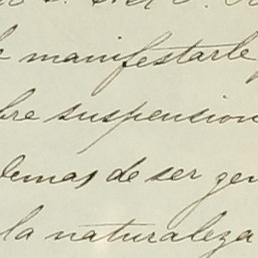 manifestarle
bre suspension
demas de ser gen
la naturaleza